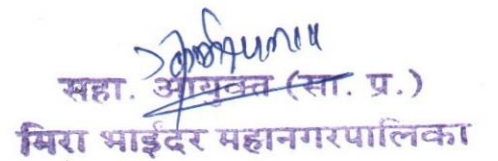 सहा. आयुक्त (सा. प्र.)
मिरा भाईंदर महानगरपालिका